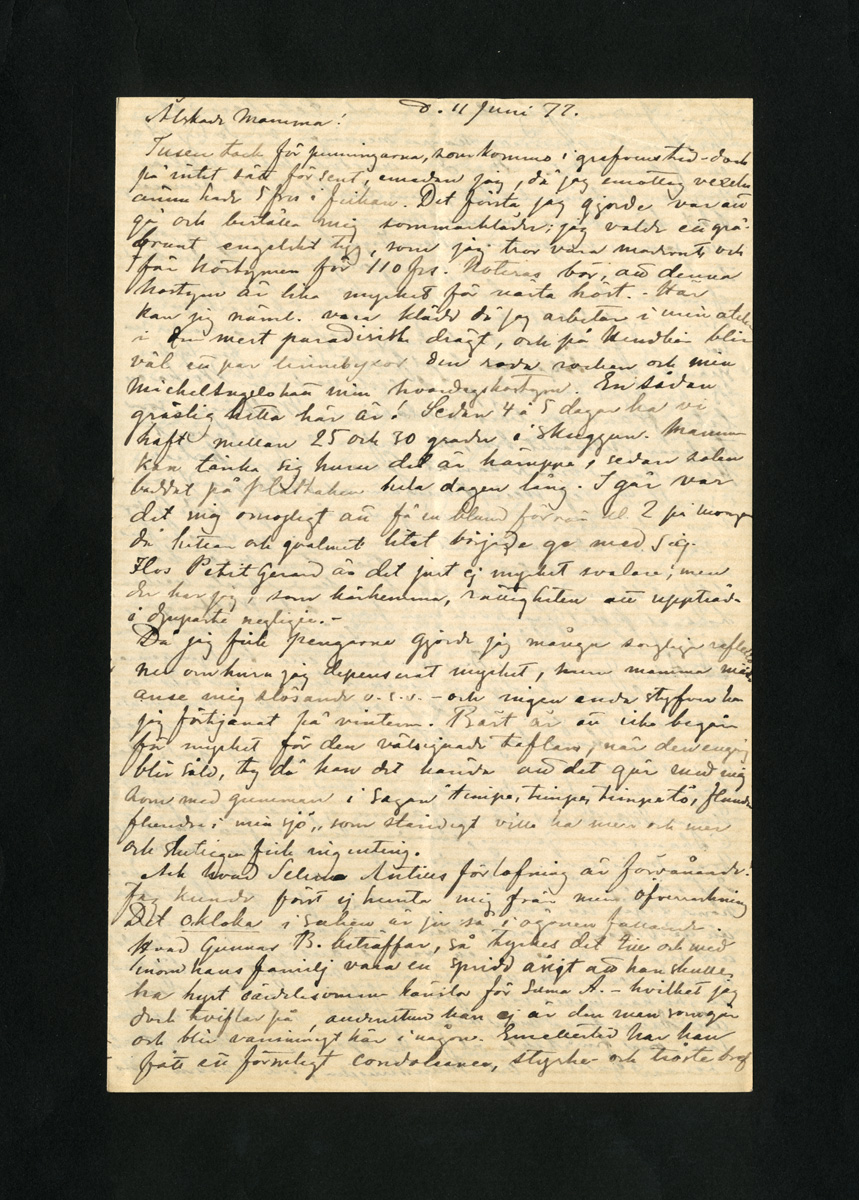 D. 11 Juni 77.
Älskade Mamma!
Tusen tack för penningarna, som kommo i grefvens tid - dock
på intet sätt för sent, emedan jag, då jag emottog vexeln
ännu hade 5 frs i fickan. Det första jag gjorde var att
gå och beställa mig sommarkläder; jag valde ett grå-
brunt engelskt tyg, som jag tror vara modernt och
får kostymen för 110 frs. Noteras bör, att denna
kostym är lika mycket för nästa höst. - Här
kan jag näml. vara klädd då jag arbetar i min atelier
i den mest paradisiska drägt, och på landet blir
väl ett par linnebyxor den röda rocken och min
Michel Angelohatt min hvardagskostym. En sådan
gräslig hetta här är! Sedan 4 à 5 dagar ha vi
haft mellan 25 och 30 grader i skuggan. Mamma
kan tänka sig huru det är häruppe, sedan solen
på plåttaken hela dagen lång. I går var
det mig omöjligt att få en blund förrän kl. 2 på morgon
då hettan och qvalmet litet började ge med sig.
Hos Petit Gerard är det just ej mycket svalare; men
der har jag, som härhemma, rättigheten att uppträda
i djupaste negligée. -
Då jag fick pengarna gjorde jag många sorgliga reflexio
ner om huru jag depenserat mycket, huru mamma måste
anse mig slösande o. s. v. - och ingen enda styfver har
jag förtjänat på vintern. Bäst är att icke begära
för mycket för den välsignade taflan, när den engång
blir såld, ty då kan det hända att det går med mig
som med gumman i sagan "timpe, timpe, timpetö, flundra
flundra i min sjö", som ständigt ville ha mer och mer
och slutligen fick ingenting.
Ack hvad Selma Antins förlofning är förvånande!
Jag kunde först ej hemta mig från min öfverraskning
Det okloka i saken är ju så i ögonen fallande.
Hvad Gunnar B. beträffar, så tyckes det till och med
inom hans familj vara en spridd åsigt att han skulle
ha hyst särdeles varma känslor för Selma A. - hvilket jag
dock tviflar på, åtminstone han ej är den man som går
och blir vansinnigt kär i någon. Emellertid har han
fått ett förmligt condoleance, styrke- och tröstebref